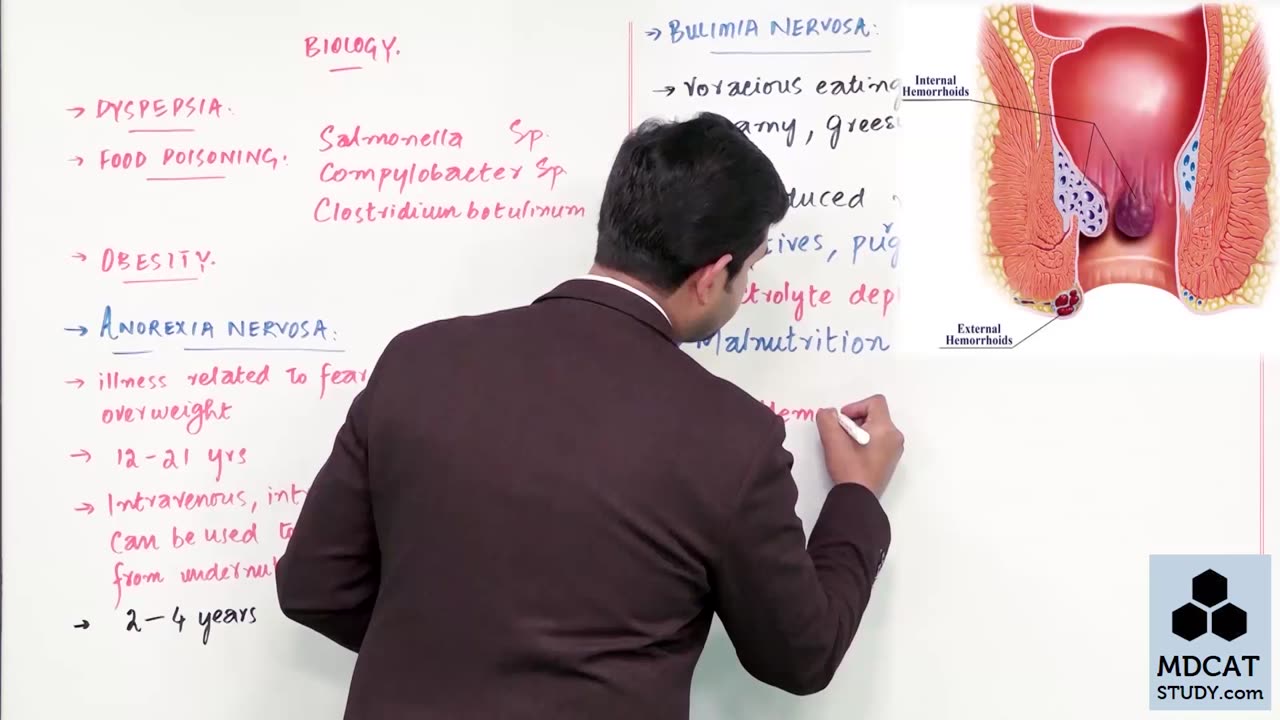 BIOLOGY.
→ DYSPEPSIA.
→ FOOD POISONING.
Salmonella Sp.
Compylobacter Sp
Clostridium botulinum
→ OBESITY.
→ ANOREXIA NERVOSA:
→ illness related to fear
overweight
→ 12-21 yrs
→ Intravenous, int
can be used to
from undernut
→ 2-4 years
→ BULIMIA NERVOSA:
→ Voracious eating
amy, grees
duced
tives, purg
trolyte dep
Malnutrition
Hem
Internal
Hemorrhoids
External
Hemorrhoids
MDCAT
STUDY.com